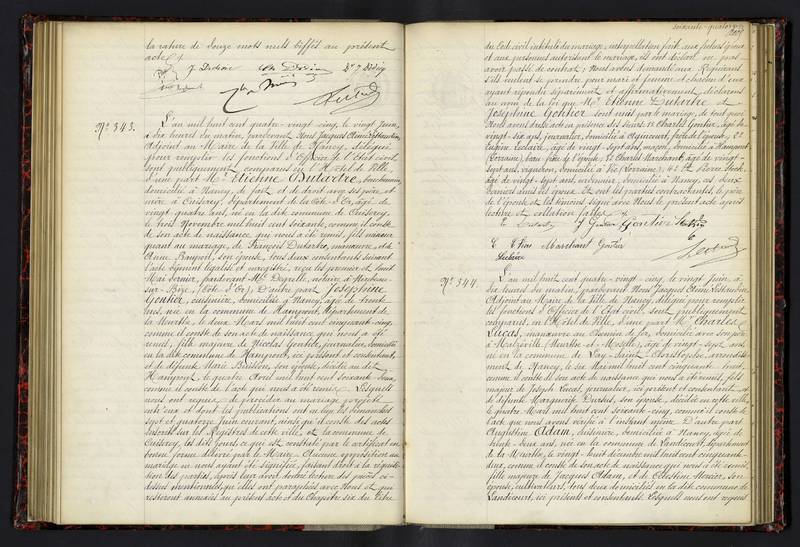 la rature de douze mots nuls biffés au présent
acte
N° 343.
L'an mil huit cent quatre-vingt-cinq, le vingt Juin,
à dix heures du matin, pardevant Nous Jacques
Adjoint au Maire de la Ville de Nancy, délégué
pour remplir les fonctions d'Officier de l'Etat civil,
sont publiquement comparus en l'Hôtel de Ville,
d'une part Mr Etienne Dutartre,
domicilié à Nancy, de fait et de droit avec ses père et
mère à Cussey, Département de la Côte-d'Or, âgé de
vingt-quatre ans, né en la dite commune de Cussey,
le trois Novembre mil huit cent soixante, comme il conste
de son acte de naissance qui nous a été remis, fils majeur
quant au mariage, de François Dutartre, manœuvre, et de
Anne son épouse, tous deux consentants suivant
l'acte dûment légalisé et enregistré, reçu le premier et huit
Mai dernier, pardevant Me notaire à
sur-Bèze, (Côte d'Or); D'autre part Joséphine
Gontier, cuisinière, domiciliée à Nancy, âgée de trente
ans, née en la commune de Hampont, département de
la Meurthe, le deux Mars mil huit cent cinquante-cinq,
comme il conste de son acte de naissance que nous a été
remis, fille majeure de Nicolas Gontier, journalier, domicilié
en la dite commune de Hampont, ici présent et consentant,
et de défunte Marie son épouse, décédée au dit
Hampont, le quatre Avril mil huit cent soixante-deux,
comme il conste de l'acte qui nous a été remis. Lesquels
nous ont requis de procéder au mariage projeté
entr'eux et dont les publications ont eu lieu les Dimanches
sept et quatorze Juin courant, ainsi qu'il conste des actes
inscrits sur les Registres de cette ville, et la commune de
Cussey, les dits jours, ce qui est constaté par le certificat en
bonne forme délivré par le Maire. Aucune opposition au
mariage ne nous ayant été signifiée, faisant droit à la réquisi-
tion des parties, après leur avoir donné lecture des pièces ci-
dessus mentionnées, qu'elles ont paraphées avec Nous et qui
resteront annexées au présent acte et du Chapitre six du Titre
soixante-quatorze
du Code civil intitulé du mariage, interpellation faite aux futurs époux
et aux personnes autorisant le mariage, ils ont déclaré ne pas
avoir passé de contrat; Nous avons demandé aux Requérants
s'ils veulent se prendre pour mari et femme et chacun d'eux
ayant répondu séparément et affirmativement, déclarons
au nom de la loi que Mr Etienne Dutartre et
Joséphine Gontier sont unis par le mariage, de tout quoi
Nous avons dressé acte en présence des sieurs: 1° Charles Gontier, âgé de
vingt-six ans, journalier, domicilié à frère de l'épouse; 2°
Eugène Leclaire, âgé de vingt-sept ans, maçon, domicilié à Hampont,
(Lorraine), beau-frère de l'épouse; 3° Charles Marchant, âgé de vingt-
sept ans, vigneron, domicilié à Vic (Lorraine); 4° Pierre
âgé de vingt-sept ans, domicilié à Nancy, ces deux
derniers amis des époux. Et ont les parties contractantes, le père
de l'épouse et les témoins signé avec Nous le présent acte, après
lecture et collation faites.
E Dutartre J Gontier Gontier
Marchant Gontier
Leclaire
N° 344.
L'an mil huit cent quatre-vingt-cinq, le vingt Juin, à
dix heures du matin, pardevant Nous Jacques
Adjoint au Maire de la Ville de Nancy, délégué pour remplir
les fonctions d'Officier de l'Etat civil, sont publiquement
comparus, en l'Hôtel de Ville, d'une part Mr Charles
Lucas, manœuvre au Chemin de fer, domicilié avec son père
à Malzéville (Meurthe-et-Moselle), âgé de vingt-sept ans,
né en la commune de Lay-Saint-Christophe, arrondisse-
ment de Nancy, le six Mai mil huit cent cinquante-huit,
comme il conste de son acte de naissance que nous a été remis, fils
majeur de Joseph Lucas, journalier, ici présent et consentant, et
de défunte Marguerite son épouse, décédée en cette ville,
le quatre Mars mil huit cent soixante-cinq, comme il conste de
l'acte que nous avons vérifié à l'instant même. D'autre part
Augustine Adam, cuisinière, domiciliée à Nancy, âgée de
trente-deux ans, née en la commune de Landécourt, département
de la Meurthe, le vingt-huit décembre mil huit cent cinquante-
deux, comme il conste de son acte de naissance qui nous a été remis,
fille majeure de Jacques Adam, et de Célestine Mercier, son
épouse, cultivateurs, tous deux domiciliés en la dite commune de
Landécourt, ici présents et consentants. Lesquels nous ont requis